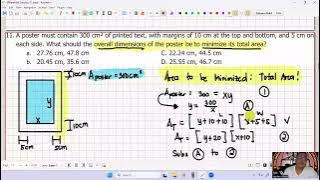 11. A poster must contain 300 cm² of printed text, with margins of 10 cm at the top and bottom, and 5 cm on
each side. What should the overall dimensions of the poster be to minimize its total area?
a. 27.76 cm, 47.8 cm
C. 22.24 cm, 44.5 cm
b. 20.45 cm, 35.6 cm
D. 25.55 cm, 46.7 cm
10cm
A poster = 300cm²
Area to be Minimized: Total Area!
A poster = 300 = xy ①
y = 300/x Ⓐ
y
x
10cm
5cm
5cm
L
W
A_T = [y+10+10][x+5+5]
A_T = [y+20][x+10] ②
Subs Ⓐ to ②